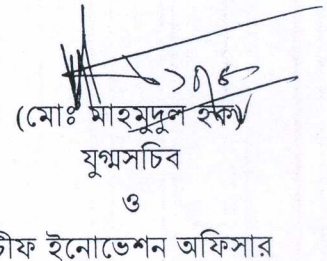 (মোঃ মাহমুদুল হক)
যুগ্মসচিব
ও
চীফ ইনোভেশন অফিসার